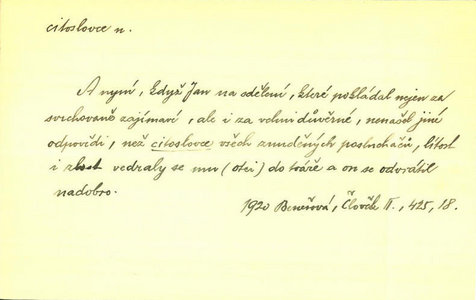 citoslovce n.
A nyní, když Jan na sdělení, které pokládal nejen za
svrchovaně zajímavé, ale i za velmi důvěrné, nenašel jiné
odpovědi, než citoslovce všech znuděných posluchačů, lítost
i zlost vedraly se mu (otci) do tváře a on se odvrátil
nadobro.
1920 Benešová, Člověk II., 425, 18.